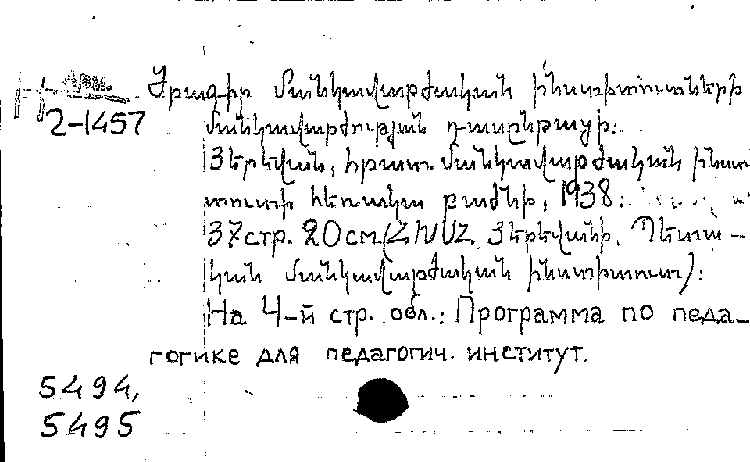 Ծրագիր մանկավարժական ինստիտուտների
2-1457 մանկավարժության դասընթացի:
Յերեվան, հրատ. Մանկավարժական ինստ
տուտի հեռակա բաժնի, 1938:
37 стр. 20 см (ՀԽՍՀ Յերեվանի Պետա-
կան մանկավարժական ինստիտուտ):
На 4-й стр. обл.: Программа по педа-
гогике для педагогич. институт.
5494,
5495